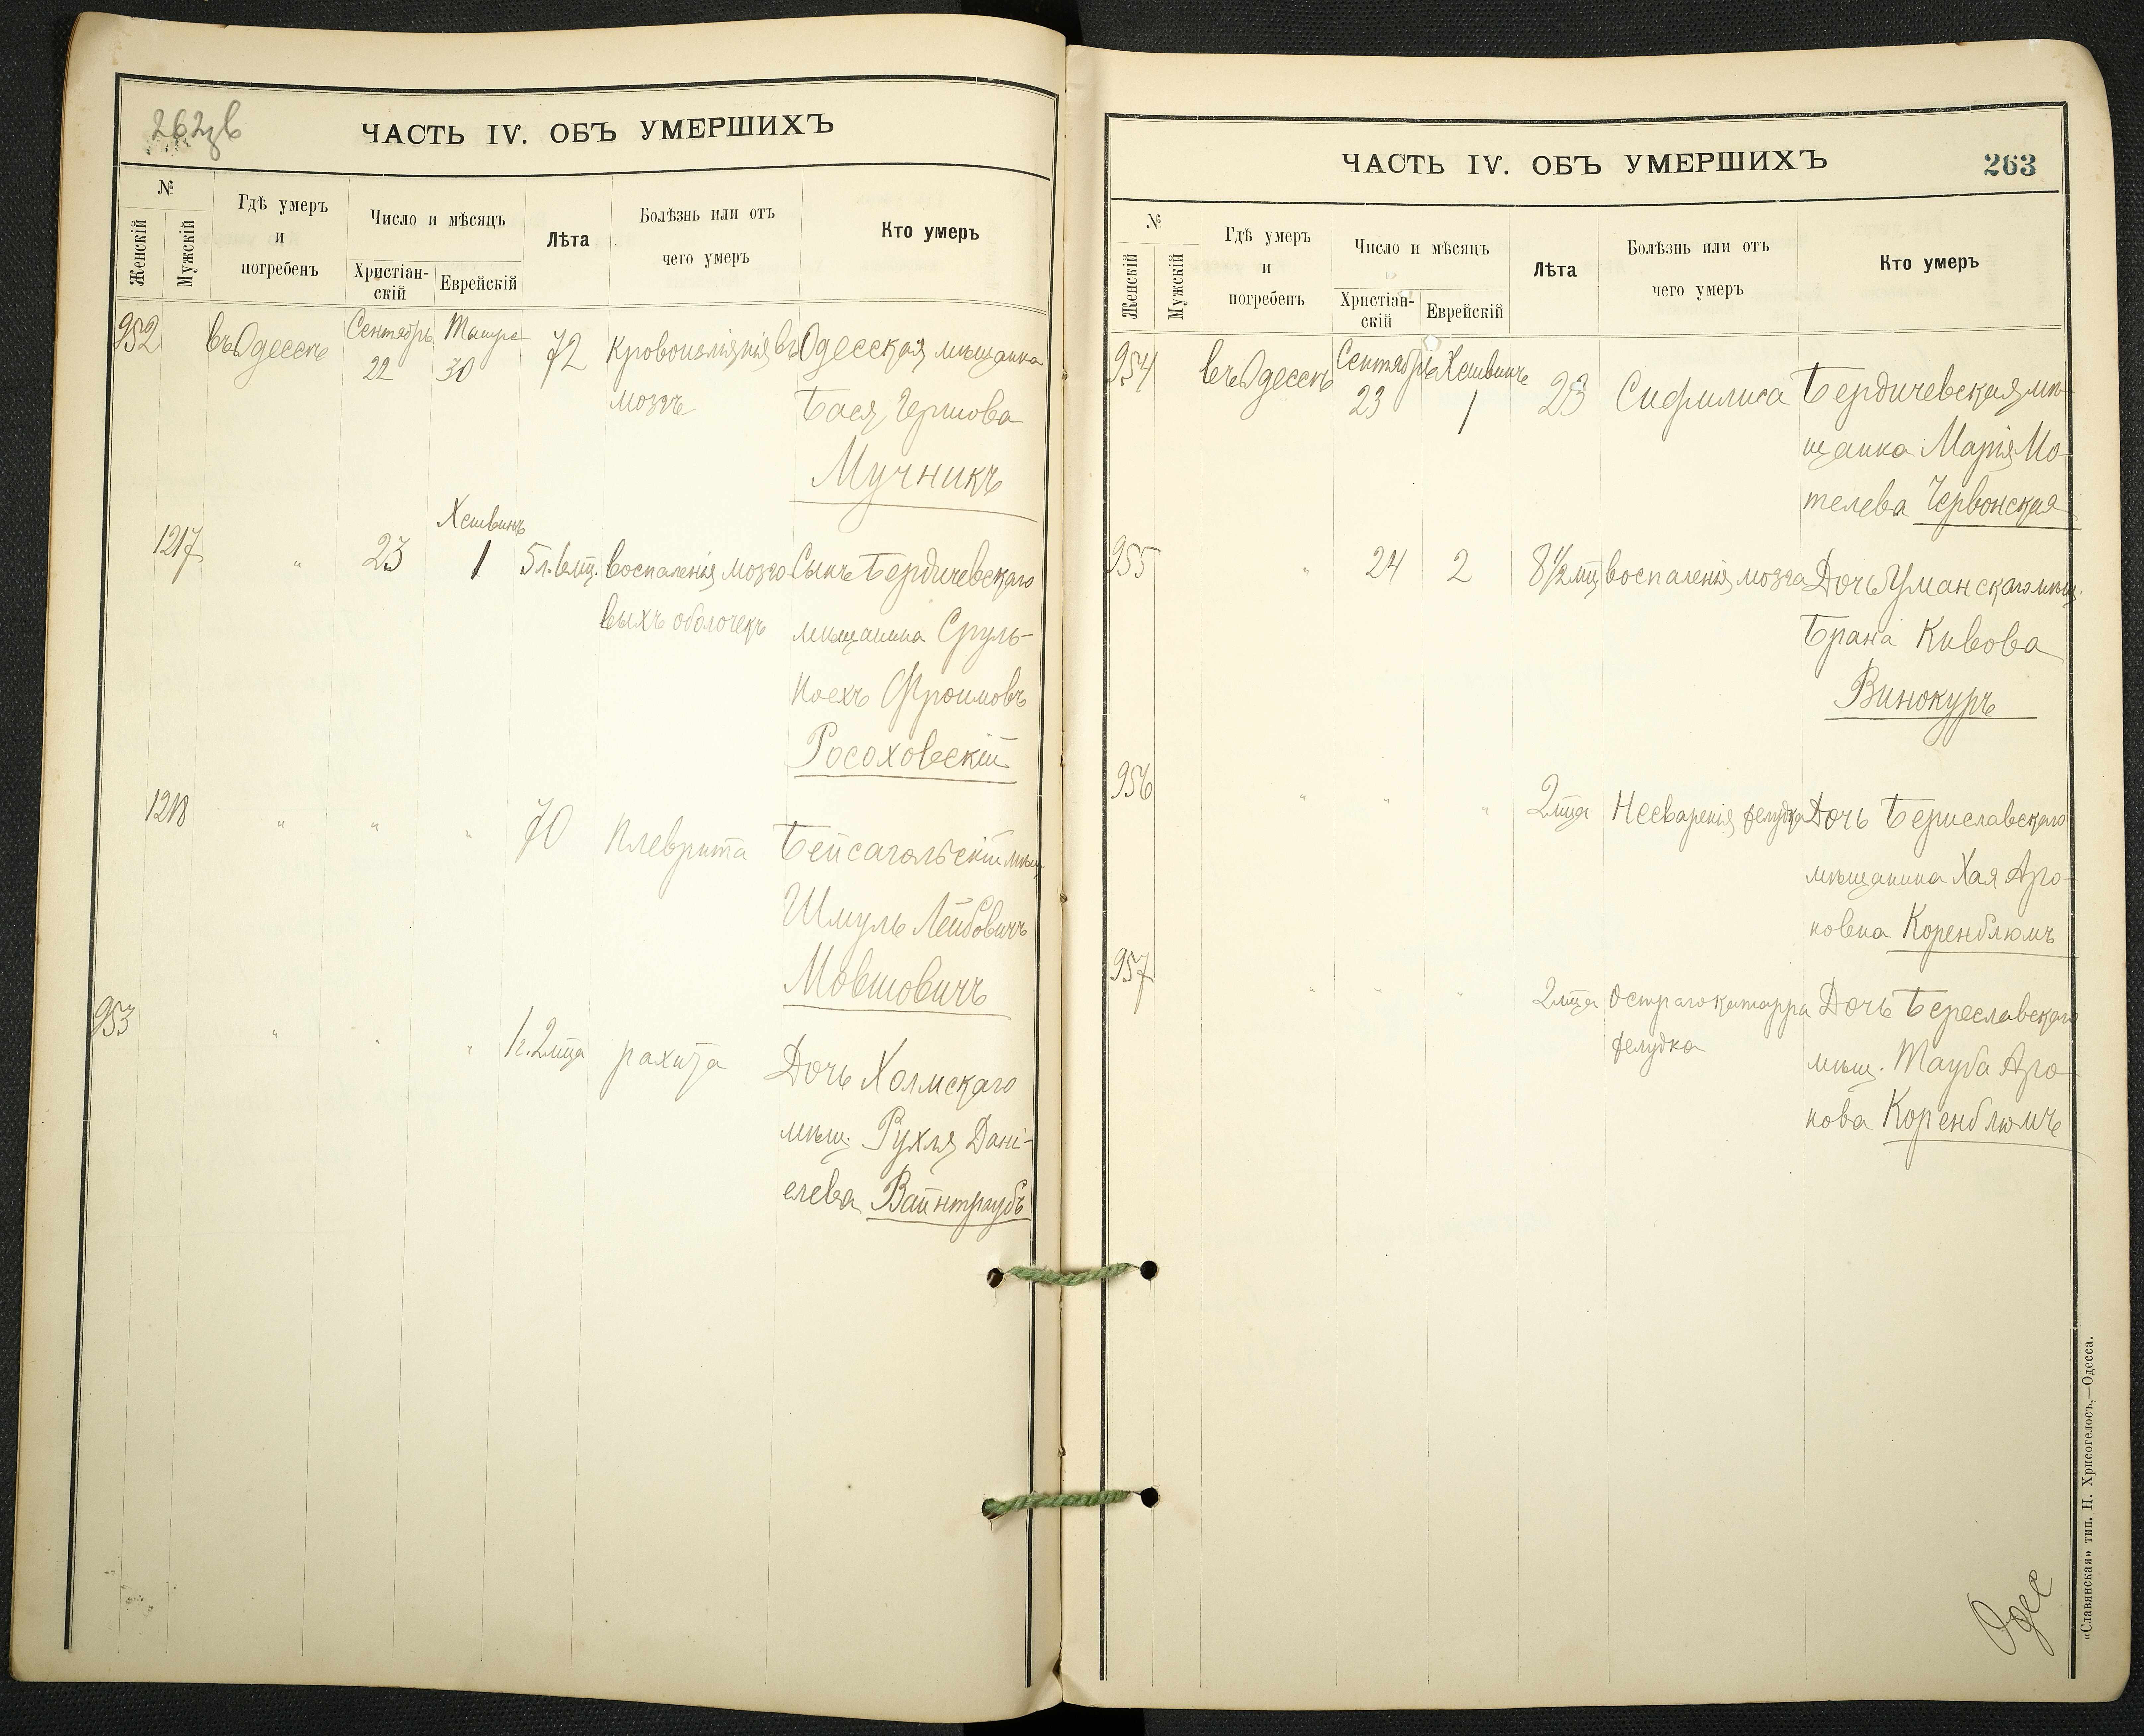 262 об
ЧАСТЬ IV. ОБЪ УМЕРШИХЪ
№
Женскій
Мужскій
Гдѣ умеръ
и
погребенъ
Число и мѣсяцъ
Христіан-
скій
Еврейскій
Лѣта
Болѣзнь или отъ
чего умеръ
Кто умеръ
952 въ Одессѣ Сентябрь 22 Тишре 30 72 Кровоизліянія въ Одесская мѣщанка
мозгъ Бася Гершова
Мучникъ
Хешвинъ
1217 " 23 1 5 л. 6 мц. воспаленія мозго Сынъ Бердичевскаго
выхъ оболочекъ мѣщанина Сруль-
Ноехъ Фроимовъ
Росоховскій
1218 " " " 70 Плеврита Бейсагольскій мѣщ.
Шмуль Лейбовичъ
Мовшовичъ
953 " " " 1 г. 2 мца рахита Дочь Холмскаго
мѣщ. Рухля Дані-
елева Вайнтраубъ
ЧАСТЬ IV. ОБЪ УМЕРШИХЪ
263
№
Женскій
Мужскій
Гдѣ умеръ
и
погребенъ
Число и мѣсяцъ
Христіан-
скій
Еврейскій
Лѣта
Болѣзнь или отъ
чего умеръ
Кто умеръ
954 въ Одессѣ Сентябрь 23 Хешвинъ 1 23 Сифилиса Бердичевская мѣ-
щанка Марія Мо
телева Червонская
955 " 24 2 8 1/2 мц воспаленія мозга Дочь Уманскаго мѣщ.
Брана Кивова
Винокуръ
956 " " " 2 мца Несваренія желудка Дочь Бериславскаго
мѣщанина Хая Аро-
новна Коренблюмъ
957 " " " 2 мца Остраго катарра Дочь Береславскаго
желудка мѣщ. Тауба Аро-
нова Коренблюмъ
Одес
«Славянская» тип. Н. Хрисогелосъ,—Одесса.